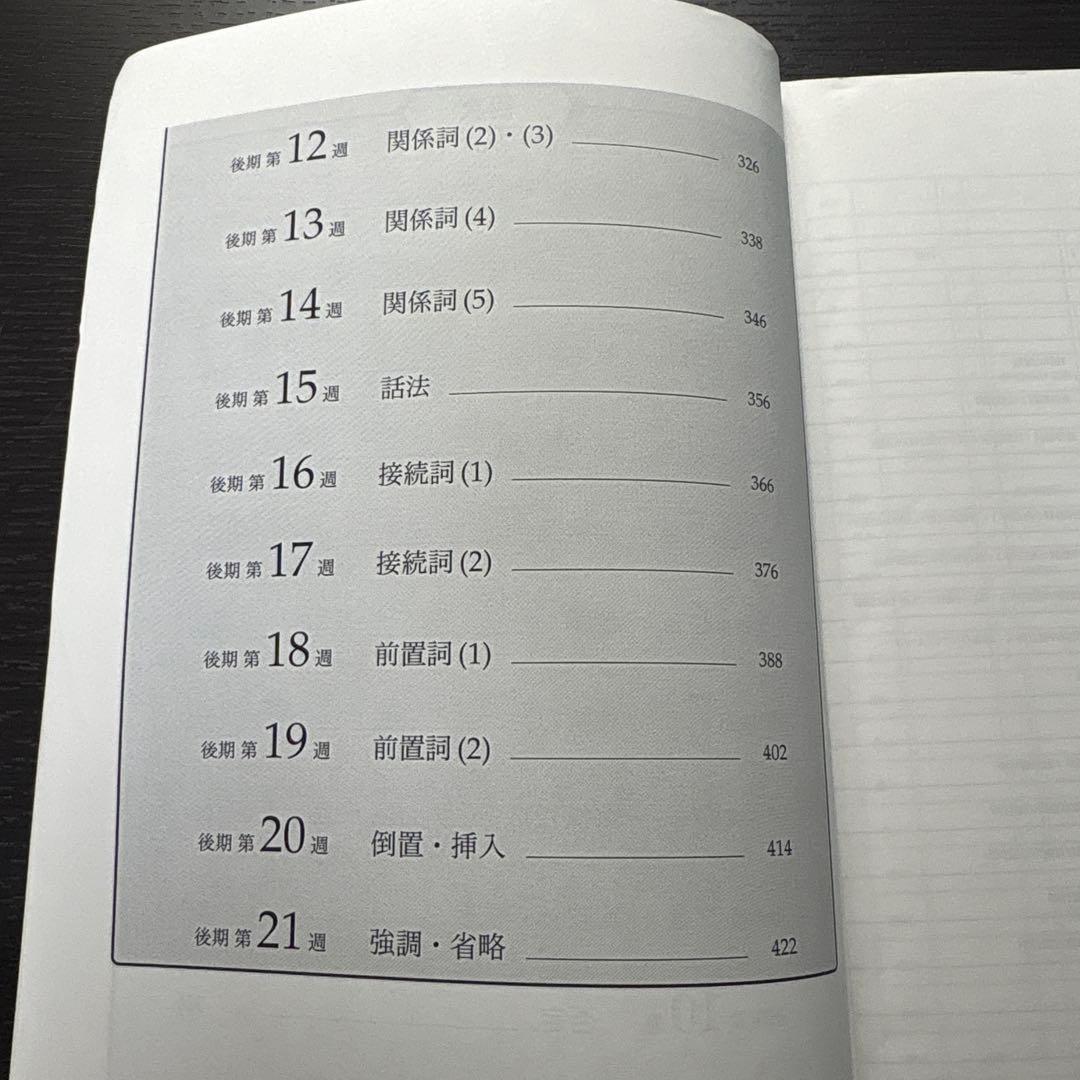 後期 第12週 関係詞(2)・(3) 326
後期 第13週 関係詞(4) 338
後期 第14週 関係詞(5) 346
後期 第15週 話法 356
後期 第16週 接続詞(1) 366
後期 第17週 接続詞(2) 376
後期 第18週 前置詞(1) 388
後期 第19週 前置詞(2) 402
後期 第20週 倒置・挿入 414
後期 第21週 強調・省略 422